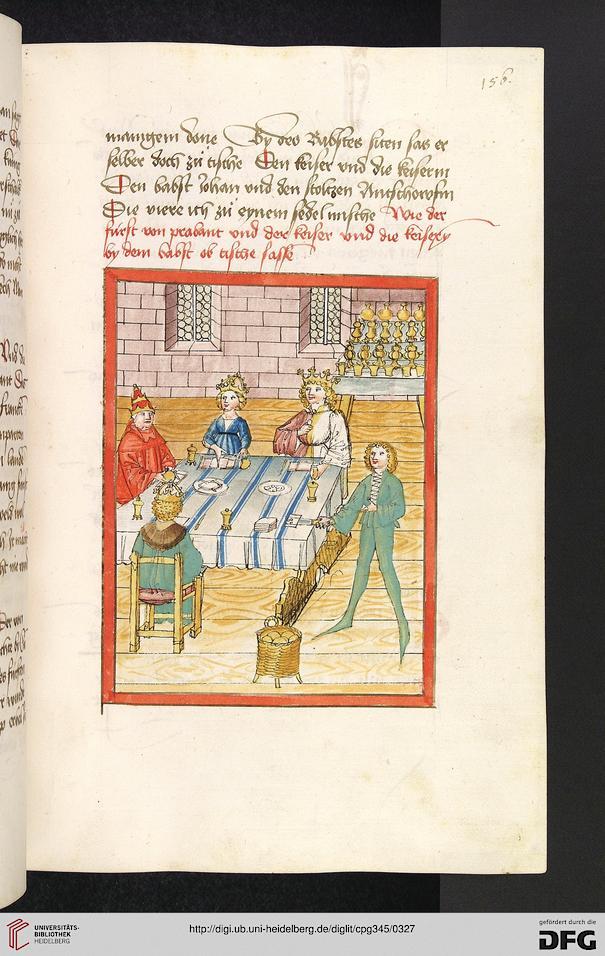 156.
manigem done By des Babstes siten sas er
selber doch zu tische Den keiser vnd die keiserin
Den babst Johan vnd den stoltzen
Die viere ich zu eynem sedel mische Wie der
fürst von prabant vnd der keiser vnd die keisery
by dem babst ob tische sasse
UNIVERSITÄTS-
BIBLIOTHEK
HEIDELBERG
http://digi.ub.uni-heidelberg.de/diglit/cpg345/0327
gefördert durch die
DFG